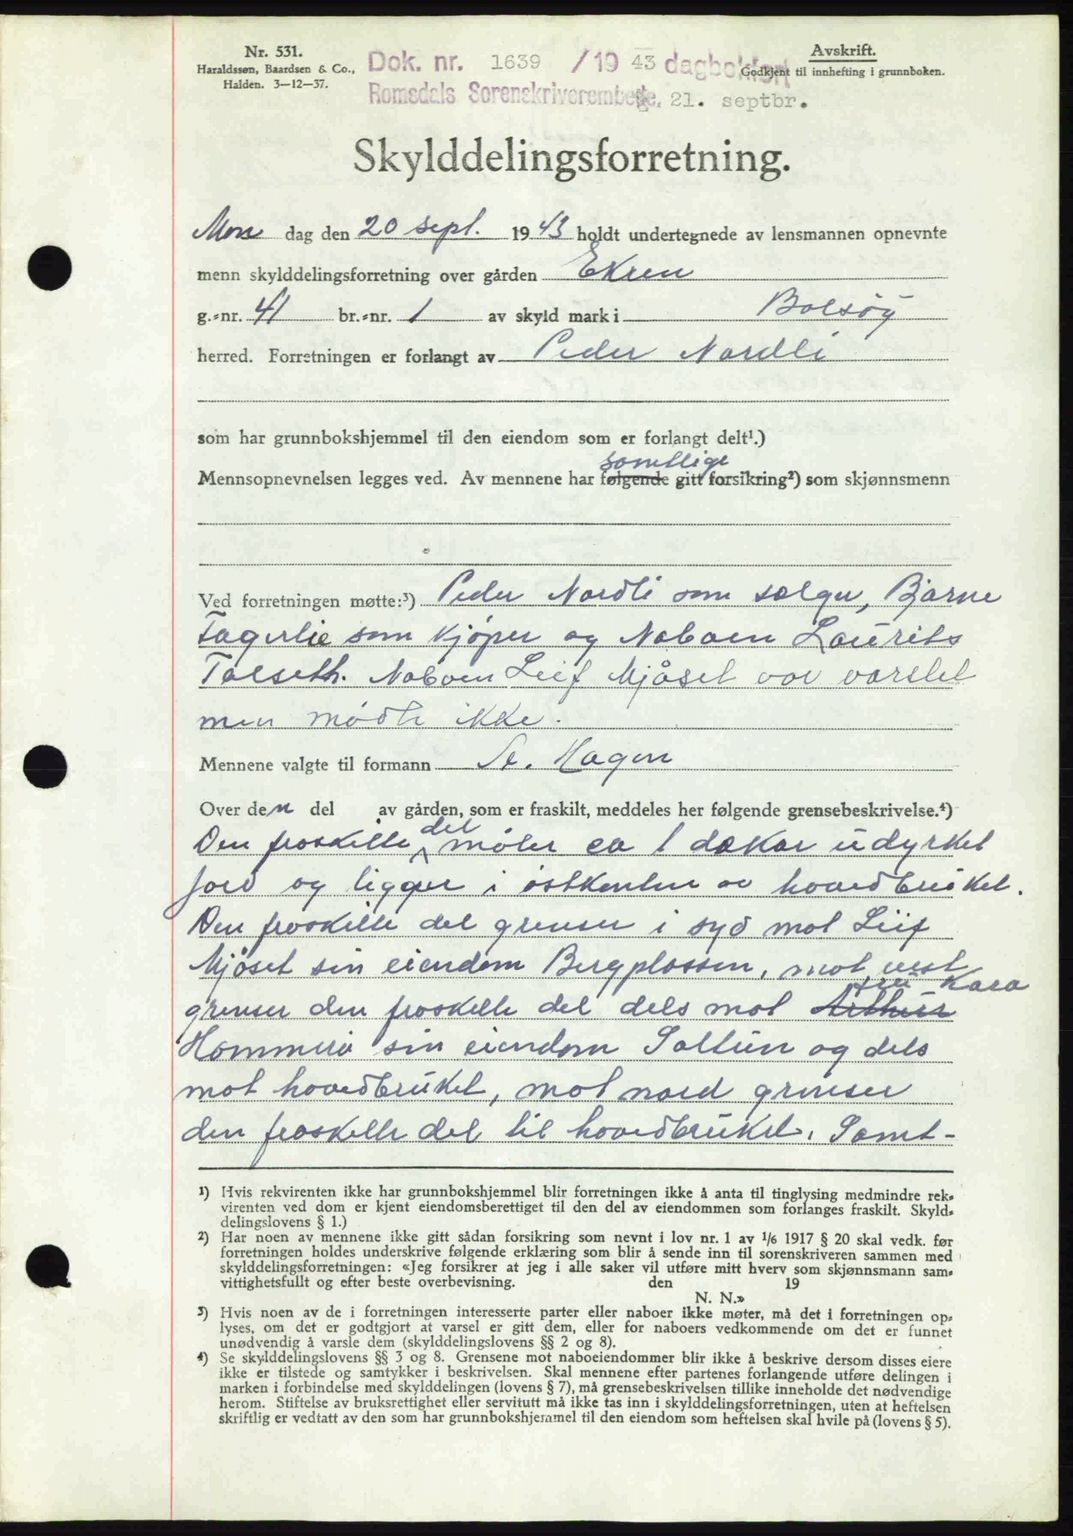 Nr. 531.
Haraldssøn, Baardsen & Co.,
Halden. 3—12—37.
Dok. nr. 1639 /19 43 dagbokført
Romsdals Sorenskriverembete, 21. septbr.
Avskrift.
Godkjent til innhefting i grunnboken.
Skylddelingsforretning.
Mon dag den 20 sept. 1943 holdt undertegnede av lensmannen opnevnte
menn skylddelingsforretning over gården Ekren
g.-nr. 41 br.-nr. 1 av skyld mark i Bolsøy
herred. Forretningen er forlangt av Peder Nordli
som har grunnbokshjemmel til den eiendom som er forlangt delt¹.)
samtlige
Mennsopnevnelsen legges ved. Av mennene har følgende gitt forsikring²) som skjønnsmenn
Ved forretningen møtte:³) Peder Nordli som sælger, Bjarne
Fagerlie som kjöper og Naboen Laurits
Talseth. Naboen Leif Mjåset var varslet
men mödte ikke.
Mennene valgte til formann A. Hagen
Over den del av gården, som er fraskilt, meddeles her følgende grensebeskrivelse.⁴)
Den fraskilte del måler ca 1 dekar udyrket
jord og ligger i östkanten av hovedbruket.
Den fraskilte del grenser i syd mot Leif
Mjåset sin eiendom Bergplassen, mot vest
fru Kara
grenser den fraskilte del dels mot Arthur
Hammerö sin eiendom Soltun og dels
mot hovedbruket, mot nord grenser
den fraskilte del til hovedbruket. Samt-
¹) Hvis rekvirenten ikke har grunnbokshjemmel blir forretningen ikke å anta til tinglysing medmindre rek-
virenten ved dom er kjent eiendomsberettiget til den del av eiendommen som forlanges fraskilt. Skyld-
delingslovens § 1.)
²) Har noen av mennene ikke gitt sådan forsikring som nevnt i lov nr. 1 av 1/6 1917 § 20 skal vedk. før
forretningen holdes underskrive følgende erklæring som blir å sende inn til sorenskriveren sammen med
skylddelingsforretningen: «Jeg forsikrer at jeg i alle saker vil utføre mitt hverv som skjønnsmann sam-
vittighetsfullt og efter beste overbevisning. den 19
N. N.»
³) Hvis noen av de i forretningen interesserte parter eller naboer ikke møter, må det i forretningen op-
lyses, om det er godtgjort at varsel er gitt dem, eller for naboers vedkommende om det er funnet
unødvendig å varsle dem (skylddelingslovens §§ 2 og 8).
⁴) Se skylddelingslovens §§ 3 og 8. Grensene mot naboeiendommer blir ikke å beskrive dersom disses eiere
ikke er tilstede og samtykker i beskrivelsen. Skal mennene efter partenes forlangende utføre delingen i
marken i forbindelse med skylddelingen (lovens § 7), må grensebeskrivelsen tillike inneholde det nødvendige
herom. Stiftelse av bruksrettighet eller servitutt må ikke tas inn i skylddelingsforretningen, uten at heftelsen
skriftlig er vedtatt av den som har grunnbokshjemmel til den eiendom som heftelsen skal hvile på (lovens § 5).